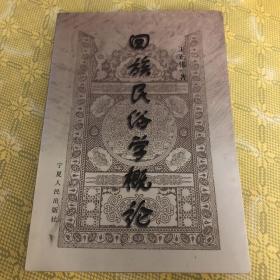 回族民俗学概论
王正伟 著
宁夏人民出版社